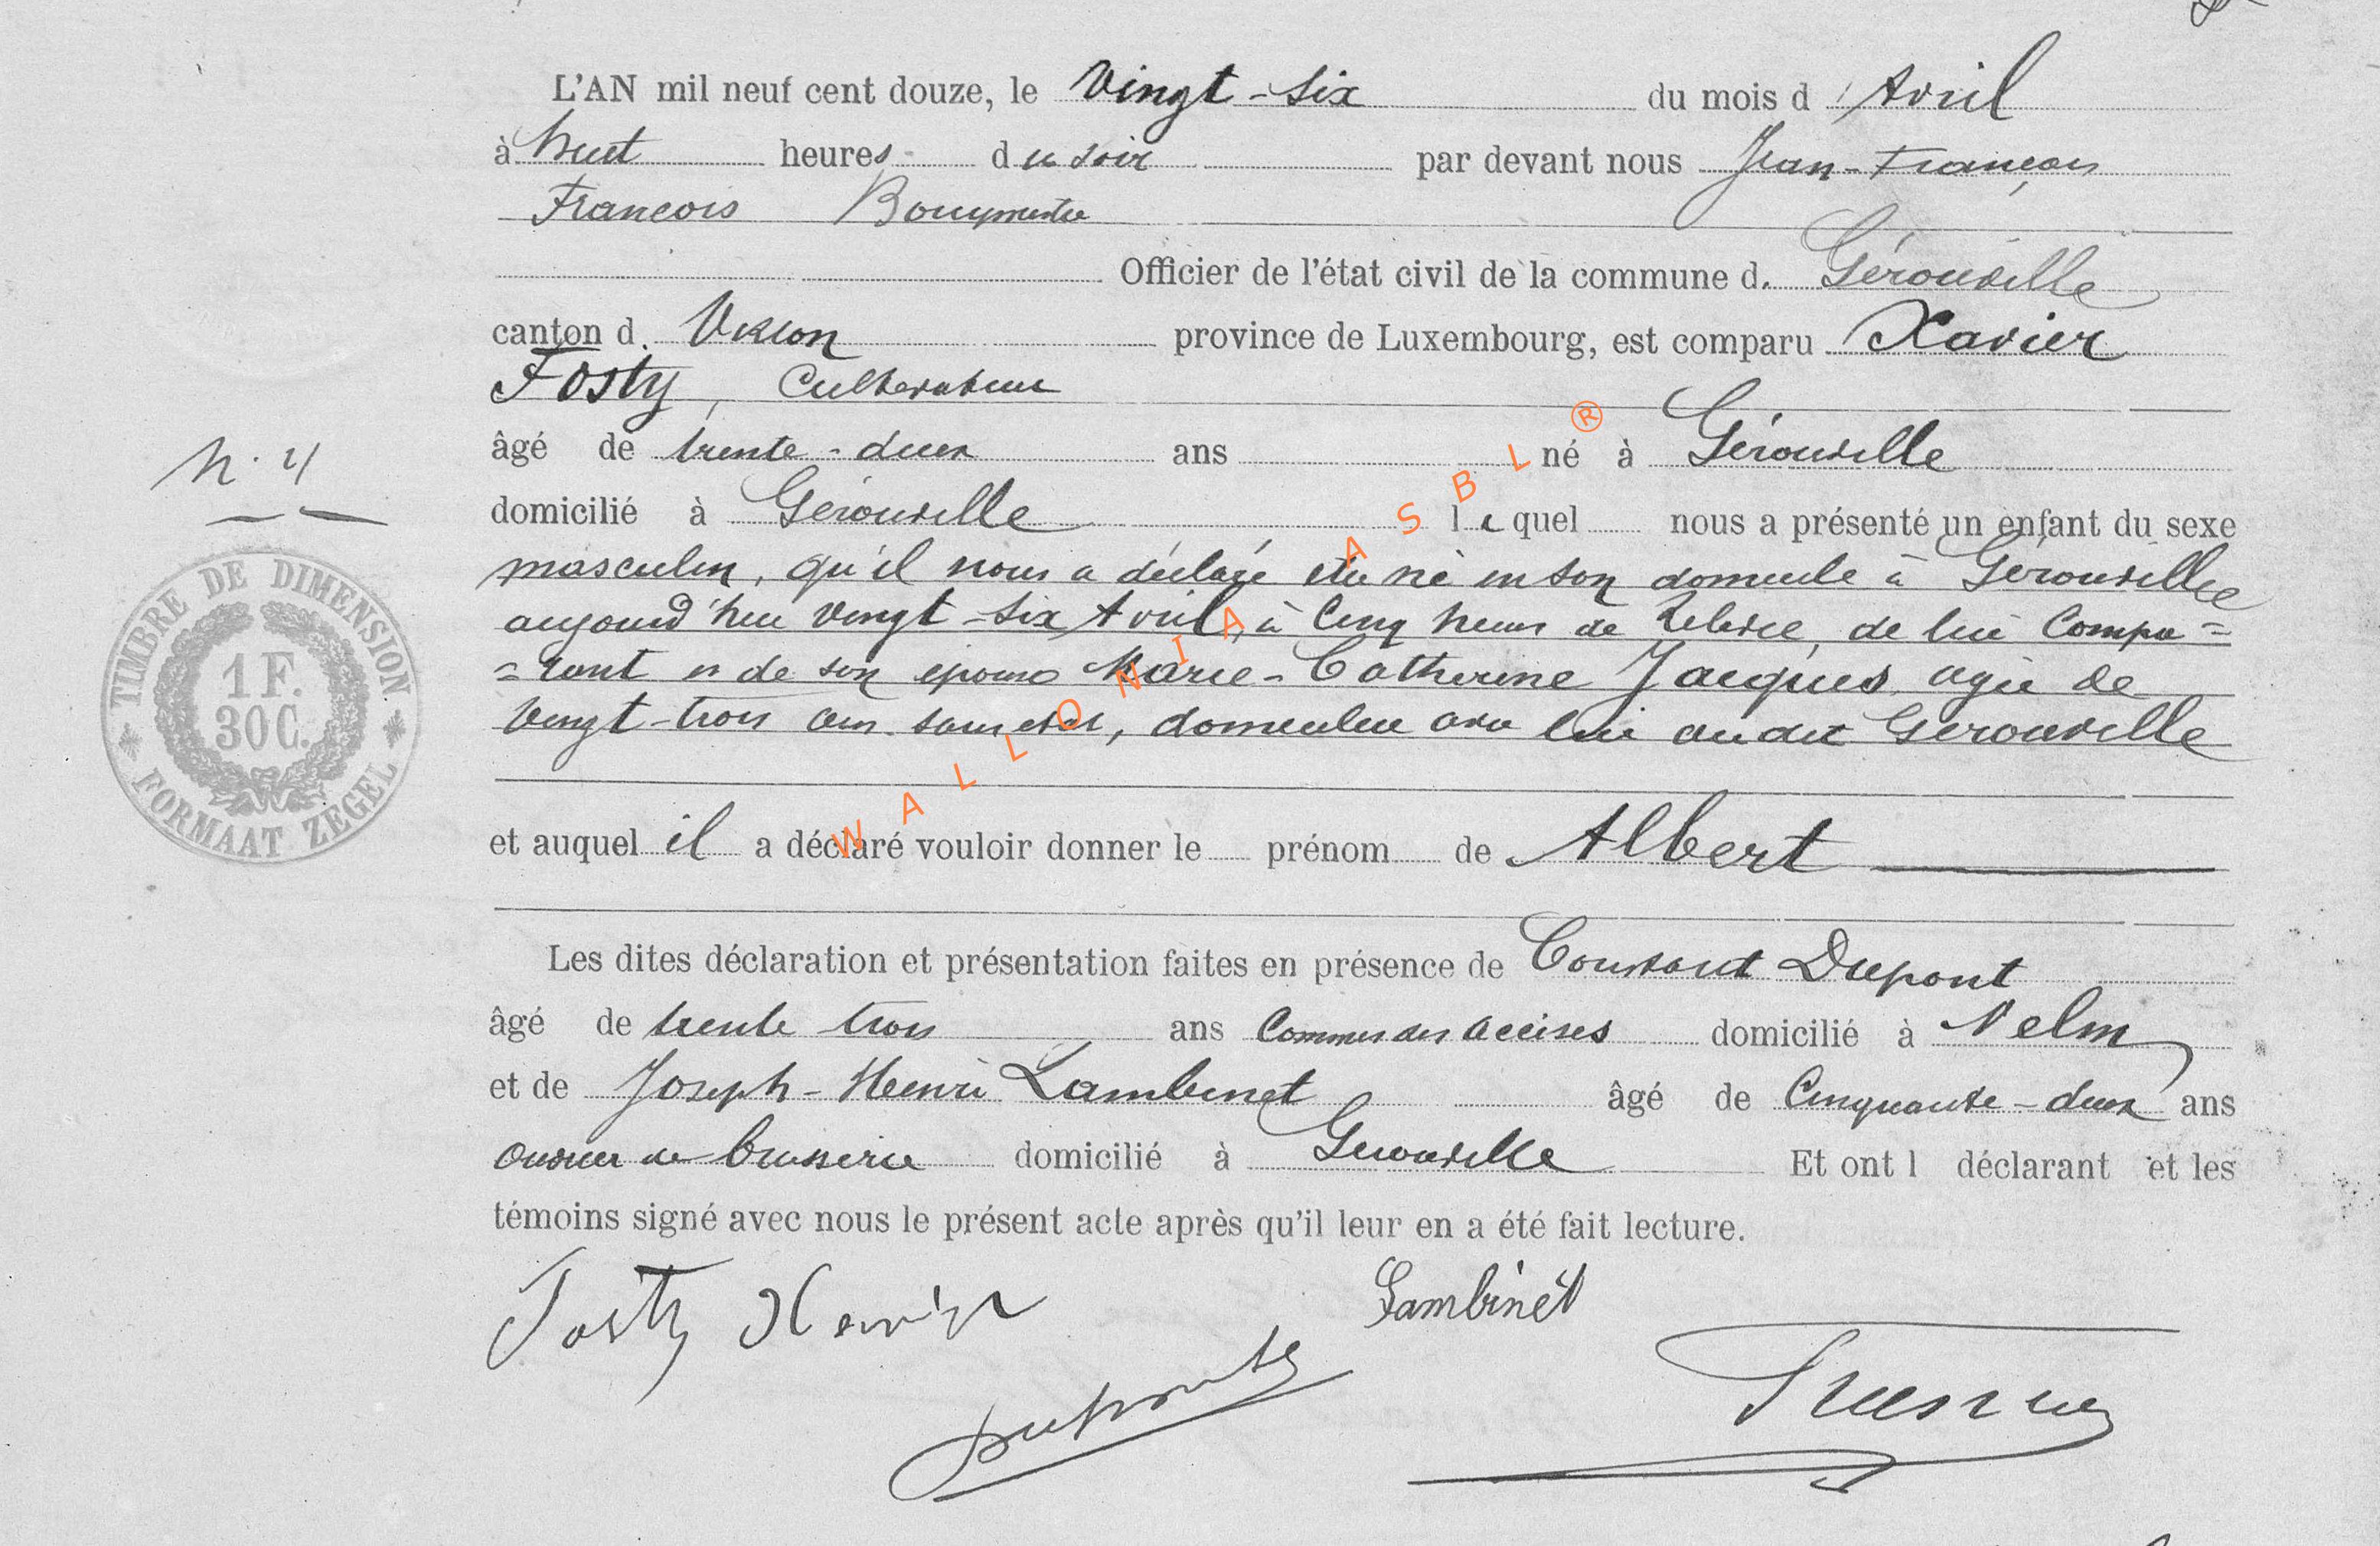 L'AN mil neuf cent douze, le Vingt-six du mois d'Avril
à huit heures du soir par devant nous Jean-François
François Bourgmestre
Officier de l'état civil de la commune d. Gérouville
canton d. Virton province de Luxembourg, est comparu Xavier
Fosty, Cultivateur
âgé de trente-deux ans né à Gérouville
N. 4
domicilié à Gérouville lequel nous a présenté un enfant du sexe
masculin, qu'il nous a déclaré être né en son domicile à Gérouville
aujourd'hui vingt-six Avril, à Cinq heures de relevée, de lui Compa=
=rant et de son épouse Marie-Catherine Jacques agée de
vingt-trois ans sans état, domiciliée avec lui audit Gérouville
TIMBRE DE DIMENSION
1 F.
30 C.
FORMAAT ZEGEL
WALLONIA ASBL ®
et auquel il a déclaré vouloir donner le prénom de Albert
Les dites déclaration et présentation faites en présence de Constant Dupont
âgé de trente trois ans Commis des accises domicilié à
et de Joseph-Henri Lambinet âgé de Cinquante-deux ans
ouvrier de brasserie domicilié à Gérouville Et ont l déclarant et les
témoins signé avec nous le présent acte après qu'il leur en a été fait lecture.
Fosty Xavier Lambinet
Dupont